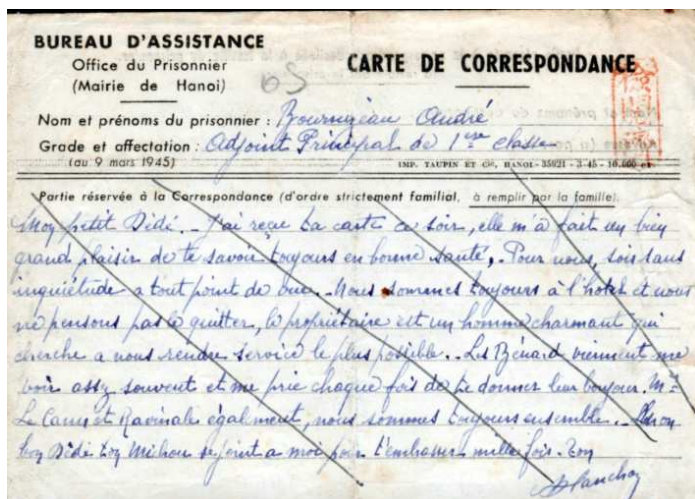 BUREAU D'ASSISTANCE
Office du Prisonnier
(Mairie de Hanoi)
CARTE DE CORRESPONDANCE
Nom et prénoms du prisonnier : André
Grade et affectation : Adjoint Principal de 1ere classe
(au 9 mars 1945)
IMP. TAUPIN ET Cie, HANOI - 35921 - 3-45 - 10.000 ex
Partie réservée à la Correspondance (d'ordre strictement familial, à remplir par la famille).
Mon petit Dédé. J'ai reçu ta carte ce soir, elle m'a fait un bien
grand plaisir de te savoir toujours en bonne santé, Pour nous, sois sans
inquiétude a tout point de vue. Nous sommes toujours à l'hotel et nous
ne pensons pas le quitter, le propriétaire est un homme charmant qui
cherche a nous rendre service le plus possible. Les Bénard viennent me
voir assez souvent et me prie chaque fois de te donner leur bonjour. Mme
Le Camus et Ravinale également, nous sommes toujours ensemble.
Dédé ton Michou se joint a moi pour t'embrasser mille fois. Ton